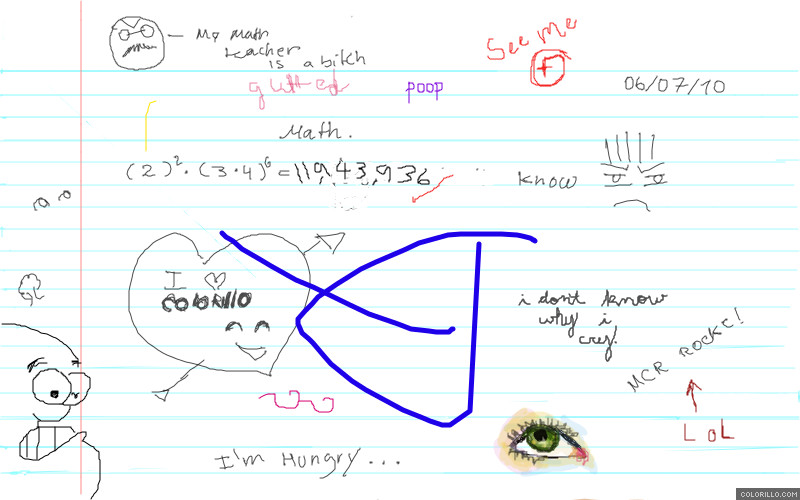 My math
teacher
is a bitch
See me
F
gutted
poop
06/07/10
Math.
(2)². (3.4)⁶ = 11,943,936
know
I ♡
COLORILLO
i dont know
why i
cry!
MCR ROCKZ!
LOL
I'm Hungry...
COLORILLO.COM